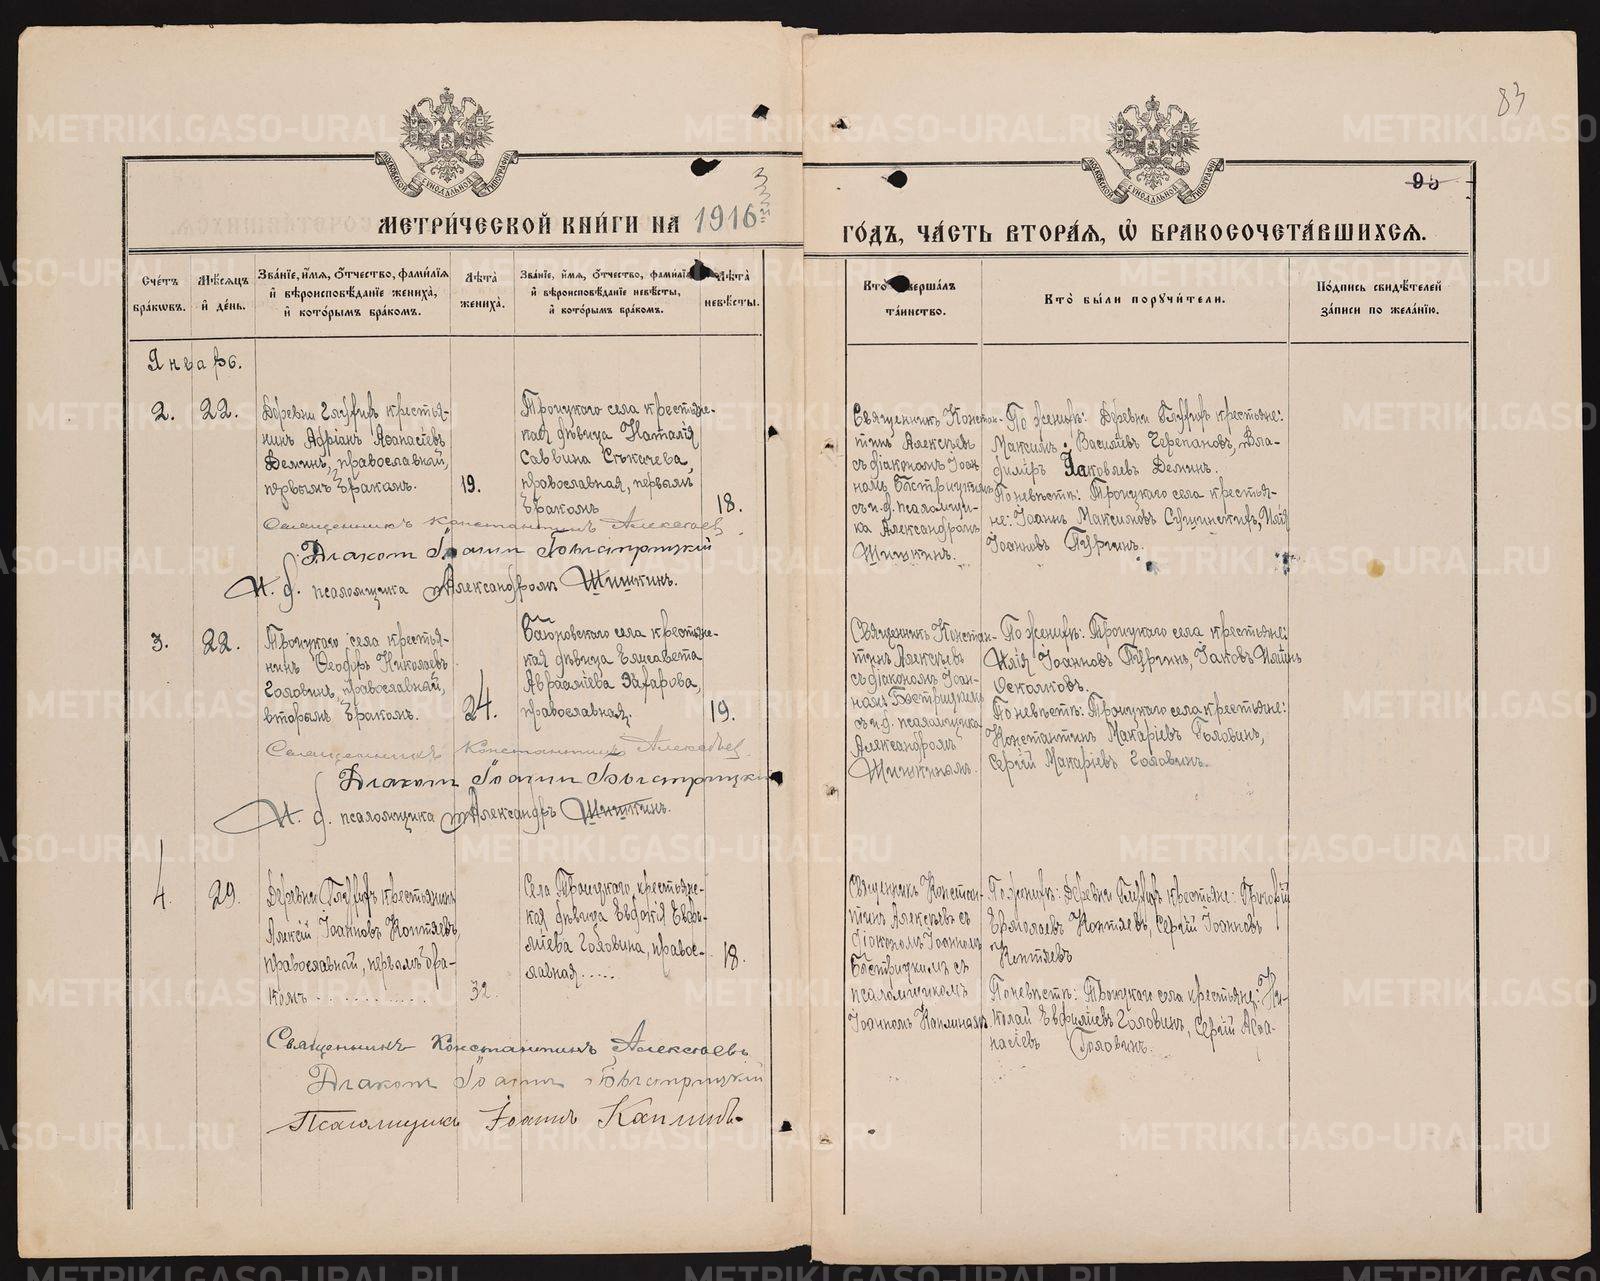 83
95
МЕТРИ́ЧЕСКОЙ КНИ́ГИ НА 1916
ГО́ДЪ, ЧА́СТЬ ВТОРА́Я, Ѡ҆ БРАКОСОЧЕТА́ВШИХСЯ.
Сче́тъ бра́кѡвъ.
Мѣ́сяцъ и҆ де́нь.
Зва́нїе, и҆́мя, ѻ҆́тчество, фами́лїя и҆ вѣроисповѣ́данїе жениха̀, и҆ кото́рымъ бра́комъ.
Лѣ́та жениха̀.
Зва́нїе, и҆́мя, ѻ҆́тчество, фами́лїя и҆ вѣроисповѣ́данїе невѣ́сты, и҆ кото́рымъ бра́комъ.
Лѣ́та невѣ́сты.
Кто̀ соверша́лъ та́инство.
Кто̀ бы́ли поручи́тели.
По́дпись свидѣ́телей за́писи по жела́нїю.
Январь.
2.
22.
Деревни Глуфихъ крестья-
нинъ Адріанъ Аѳанасіевъ
Деминъ, православный,
первымъ бракомъ.
19.
Троицкаго села крестьянс-
кая дѣвица Наталія
Саввина Секачева,
православная, первымъ
бракомъ
18.
Священникъ Констан-
тинъ Алексѣевъ
съ діакономъ Іоан-
номъ Быстрицкимъ
съ и.д. псаломщи-
ка Александромъ
Шишкинъ.
По женихѣ: Деревни Глуфихъ крестьяне:
Максимъ Васильевъ Черепановъ, Вла-
димиръ Іаковлевъ Деминъ.
По невѣстѣ: Троицкаго села крестья-
не: Іоаннъ Максимовъ Сушинскихъ, Илія
Іоанновъ Пургинъ.
Священникъ Константинъ Алексѣевъ
Діаконъ Іоаннъ Быстрицкій
И. д. псаломщика Александромъ Шишкинъ.
3.
22.
Троицкаго села крестья-
нинъ Ѳеодоръ Николаевъ
Головинъ, православный,
вторымъ бракомъ.
24.
села крестьянс-
кая дѣвица Елисавета
Авраамiева Захарова,
православная.
19.
Священникъ Констан-
тинъ Алексѣевъ
съ діакономъ Іоан-
номъ Быстрицкимъ
съ и.д. псаломщика
Александромъ
Шишкиномъ.
По женихѣ: Троицкаго села крестьяне:
Илія Іоанновъ Пургинъ, Іаковъ Иліинъ
Осколковъ.
По невѣстѣ: Троицкаго села крестьяне:
Константинъ Макаріевъ Головинъ,
Сергій Макаріевъ Головинъ.
Священникъ Константинъ Алексѣевъ
Діаконъ Іоаннъ Быстрицкій
И. д. псаломщика Александръ Шишкинъ.
4.
29.
Деревни Глуфихъ крестьянинъ
Алексій Іоанновъ Коптяевъ,
православный, первымъ бра-
комъ
32.
Села Троицкаго, крестьянс-
кая дѣвица Евдокія Евфи-
міева Головина, правос-
лавная.....
18.
Священникъ Констан-
тинъ Алексѣевъ съ
діакономъ Іоанномъ
Быстрицкимъ съ
псаломщикомъ
Іоанномъ Каплинымъ
По женихѣ: Деревни Глуфихъ крестьяне: Григорій
Ермолаевъ Коптяевъ, Сергій Іоанновъ
Коптяевъ
По невѣстѣ: Троицкаго села крестьяне: Ни-
колай Евфиміевъ Головинъ, Сергій Аѳа-
насіевъ Головинъ.
Священникъ Константинъ Алексѣевъ
Діаконъ Іоаннъ Быстрицкій
Псаломщикъ Іоаннъ Каплинъ
METRIKI.GASO-URAL.RU